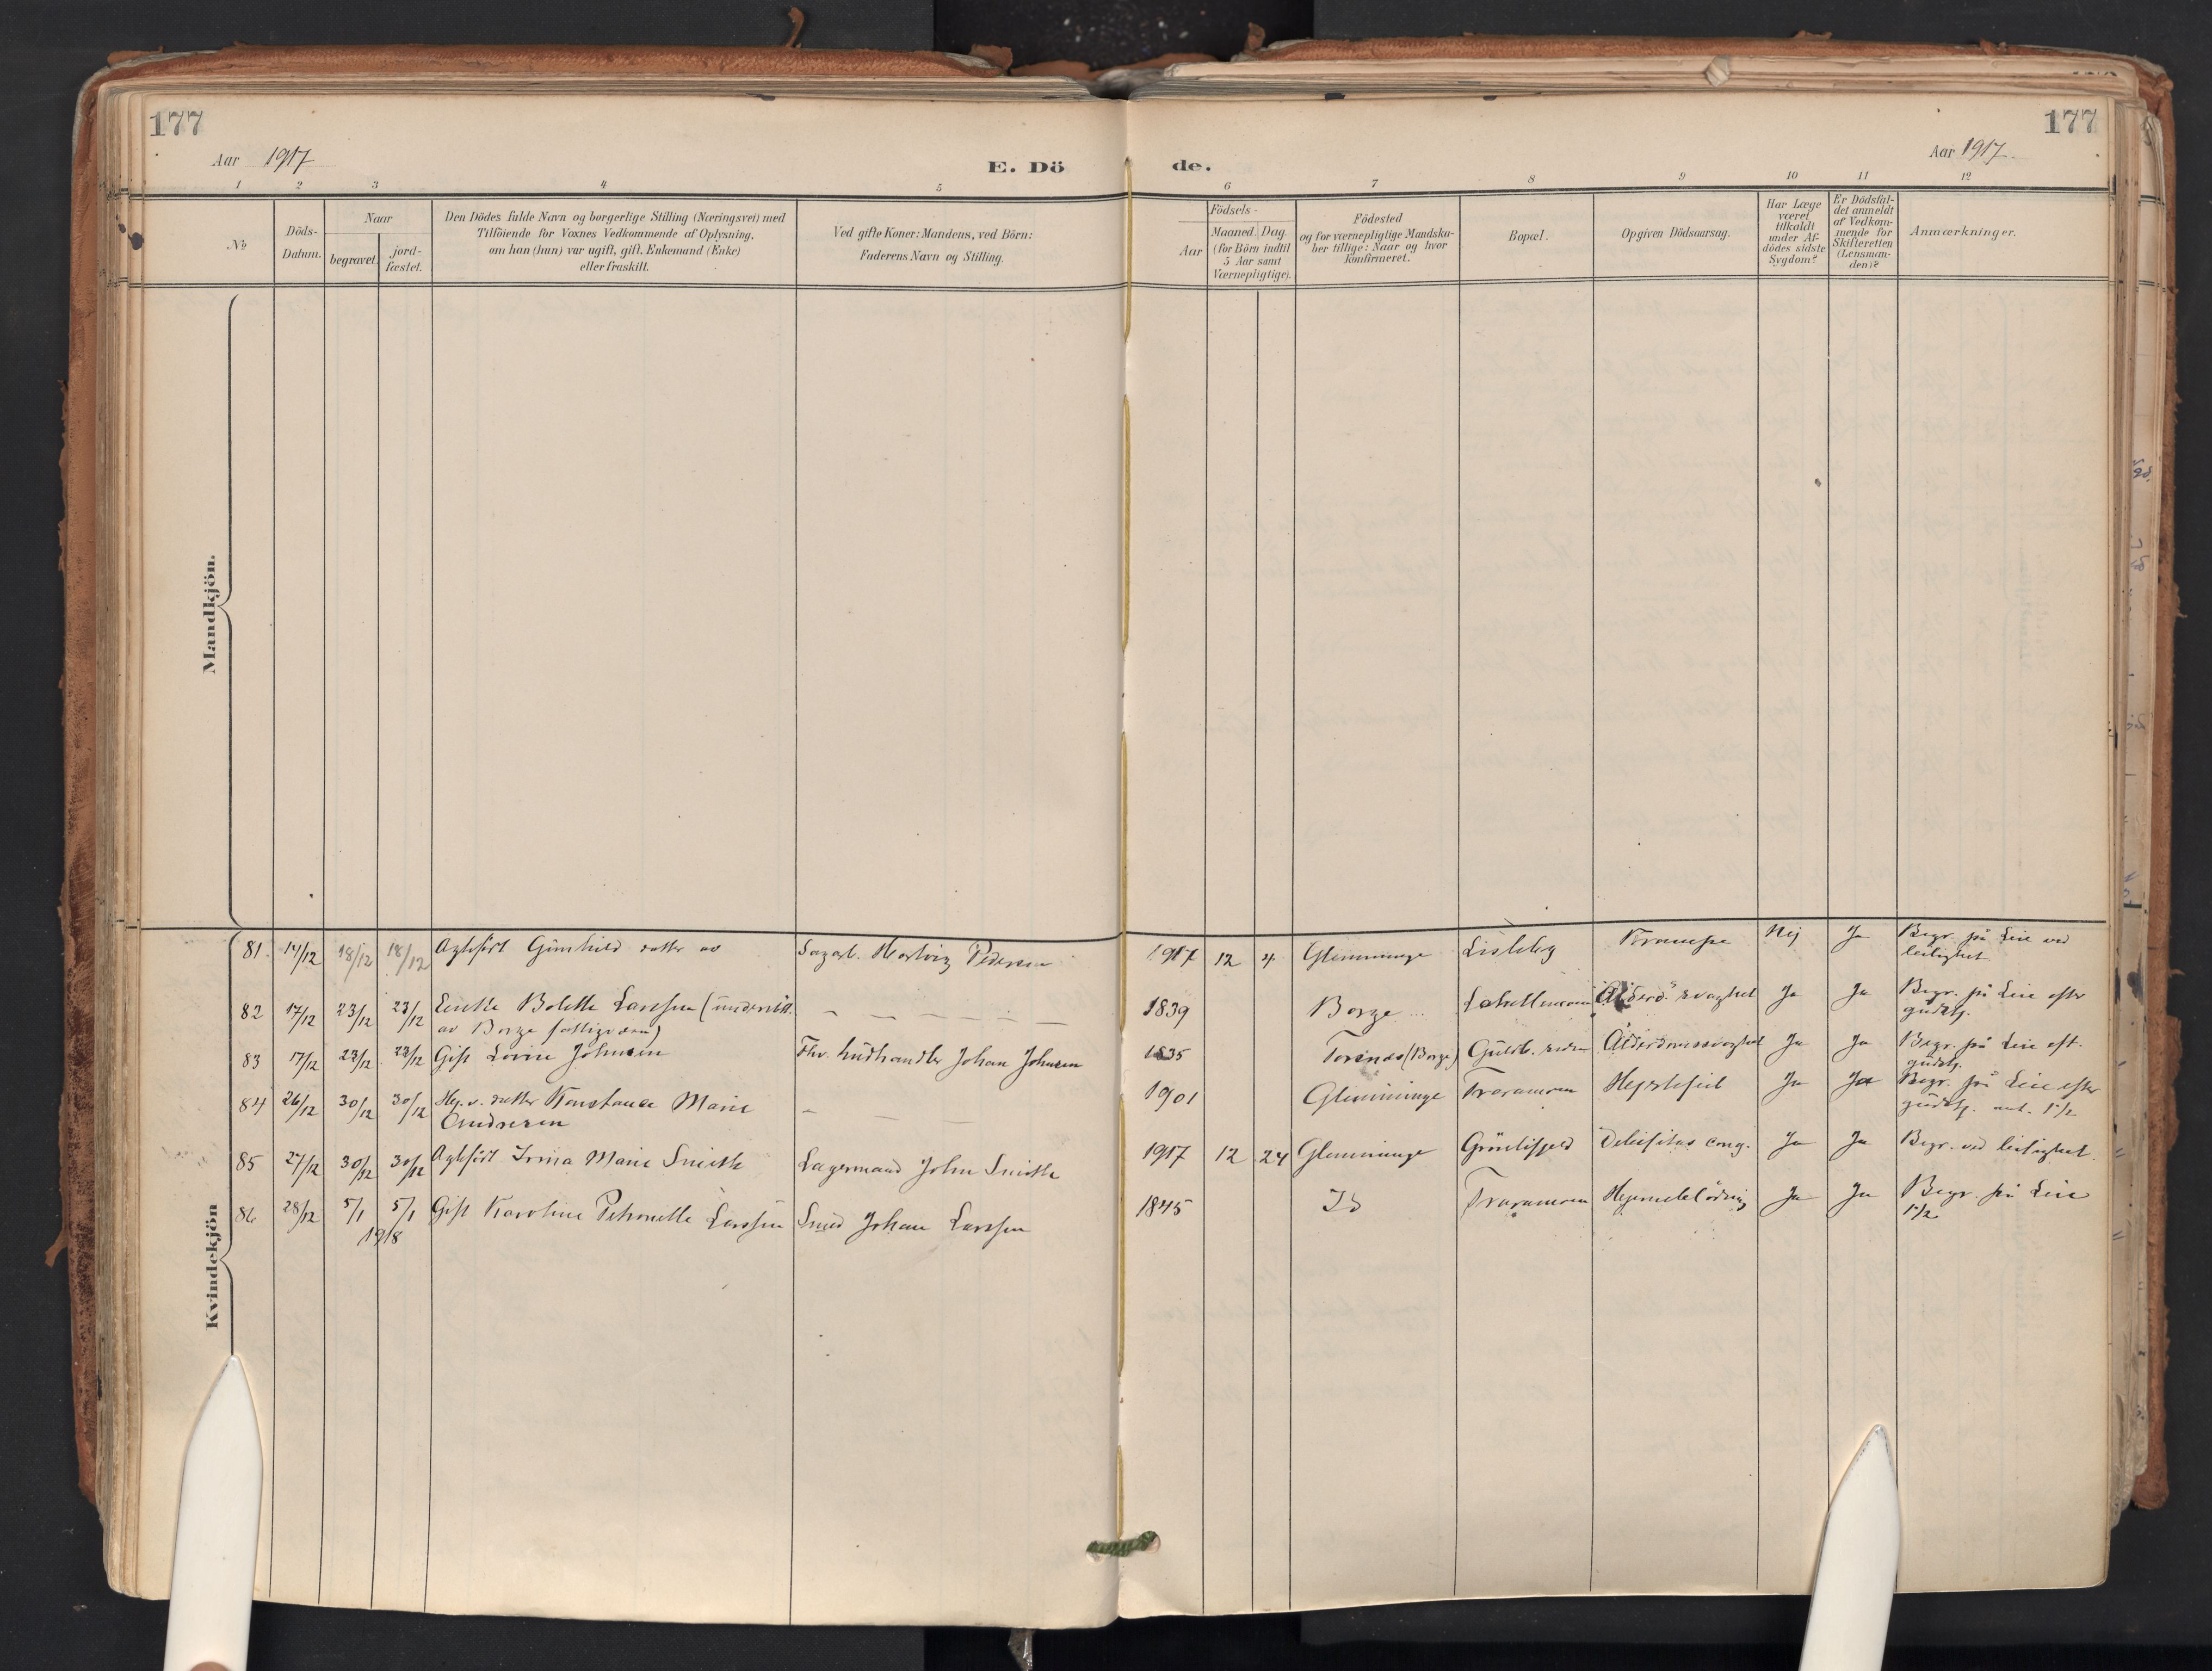 177
177
Aar 1917
E. Dö
de.
Aar 1917
1 2 3 4 5 6 7 8 9 10 11 12
No
Döds-
Datum.
Naar
begravet.
jord-
fæstet.
Den Dödes fulde Navn og borgerlige Stilling (Næringsvei) med
Tilföiende for Voxnes Vedkommende af Oplysning,
om han (hun) var ugift, gift, Enkemand (Enke)
eller fraskilt.
Ved gifte Koner: Mandens, ved Börn:
Faderens Navn og Stilling.
Födsels-
Aar
Maaned. Dag.
(for Börn indtil
5 Aar samt
Værnepligtige).
Födested
og for værnepligtige Mandska-
ber tillige: Naar og hvor
konfirmeret.
Bopæl.
Opgiven Dödsaarsag.
Har Læge
været
tilkaldt
under Af-
dödes sidste
Sygdom?
Er Dödsfal-
det anmeldt
af Vedkom-
mende for
Skifteretten
(Lensman-
den)?
Anmærkninger.
Mandkjön.
Kvindekjön
81. 14/12 18/12 18/12 Ægtefødt Gunhild datter av Sagarb. Hartvig Pedersen 1917 12 4 Glemminge Lisleby Krampe Nej Ja Begr. på Leie ved
leilighet
82 17/12 23/12 23/12 Enke Bolette Larssen (understøt. – – – – – – 1839 Borge Ålderd. svaghet Ja Ja Begr. på Leie efter
av Borge fattigvæsen) gudstj.
83 17/12 23/12 23/12 Gift Lovise Johnsen Fhv. hudhandler Johan Johnsen 1835 Torsnes (Borge) Alderdomssvaghet Ja Ja Begr. på Leie eft.
gudstj.
84 26/12 30/12 30/12 Hj. v. datter Konstance Marie – – – 1901 Glemminge Traraveien Hjertefeil Ja Ja Begr. på Leie efter
Andresen gudstj. ant. 1/2
85 27/12 30/12 30/12 Ægtefødt Irma Marie Smith Lagermand John Smith 1917 12 24 Glemminge Grønlifjeld Debilitas cong. Ja Ja Begr. ved leilighet.
86 28/12 5/1 5/1 Gift Karoline Petronelle Larssen Smed Johan Larssen 1845 Id Traraveien Hjerneblødning Ja Ja Begr. på Leie
1918 1/2